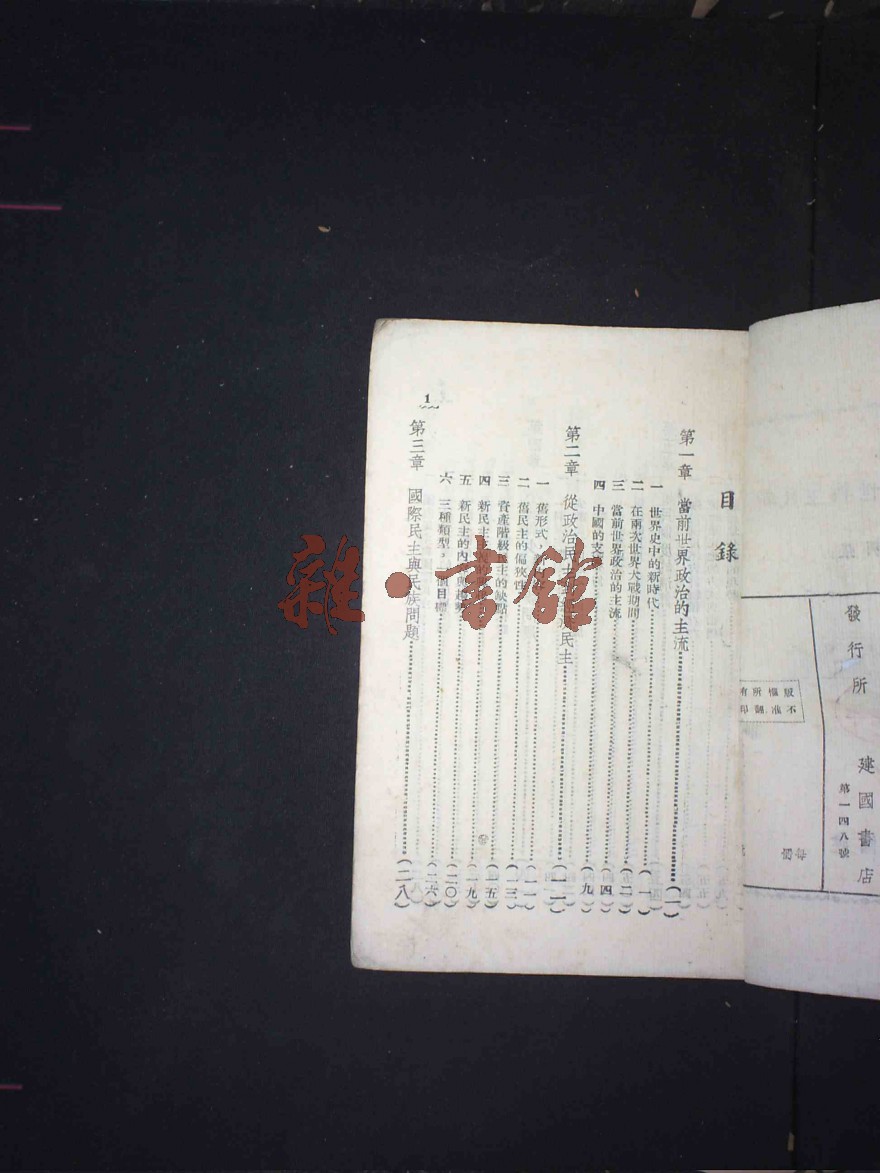 發行所
建國書店
第一四八號
版權所有
不准翻印
目錄
第一章 當前世界政治的主流……(一)
一 世界史中的新時代……(一)
二 在兩次世界大戰期間……(二)
三 當前世界政治的主流……(四)
四 中國的支……(九)
第二章 從政治民主……民主……(一一)
一 舊形式，……(一一)
二 舊民主的偏狹性……(一三)
三 資產階級民主的缺點……(一五)
四 新民主……(一九)
五 新民主的內……(二〇)
六 三種類型，一個目標……(二六)
第三章 國際民主與民族問題……(二八)
1
雜·書館